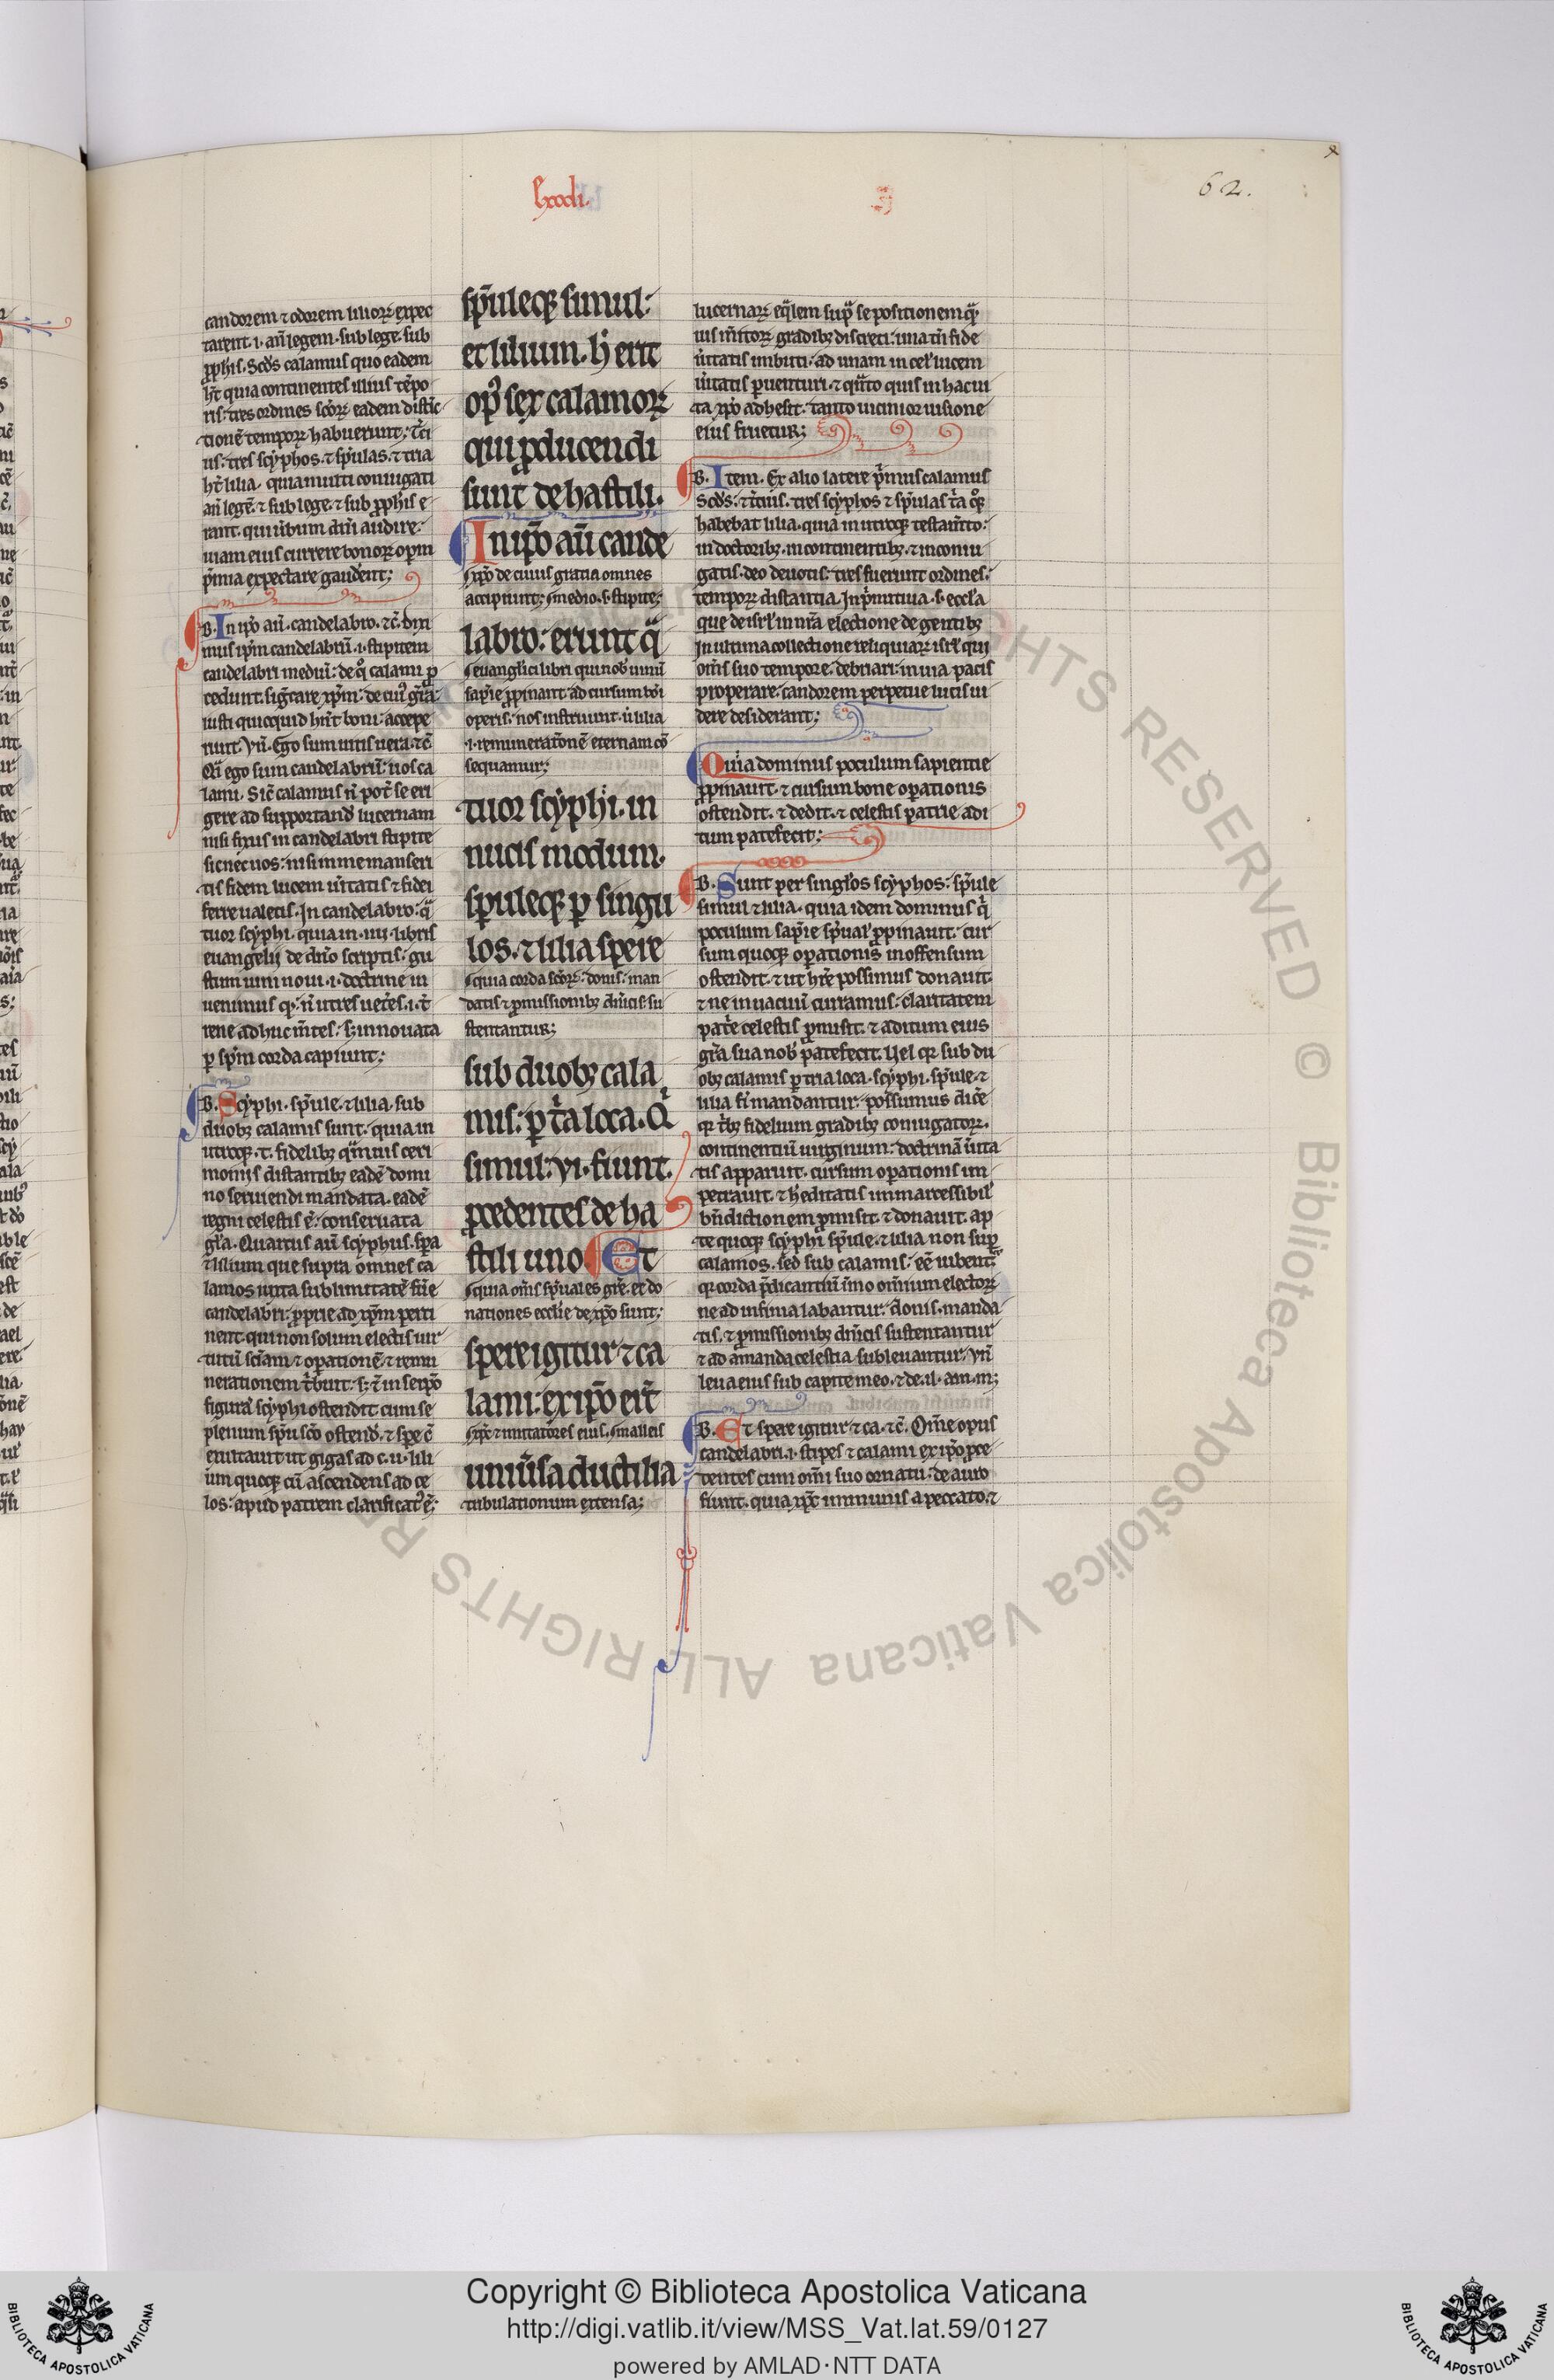 Exodi.
62.
candorem ⁊ odorem lilioꝝ expec
tarent .i. añ legem. sub lege. sub
ꝓphis. Scds calamus quo eadem
ht̃ quia continentes illius tẽpo
ris: tres ordines scõꝝ eadem distĩc
tionẽ tempoꝝ habuerunt; t̃ci
us: tres scyphos. ⁊ spĩulas. ⁊ tria
ht̃ lilia. quia multi coniugati
añ legẽ. ⁊ sub lege. ⁊ sub ꝓphis e
rant. qui ũbum dñi audire:
uiam eius currere bonoꝝ opm̃
p̃mia expectare gaudẽnt;
B. In ip̃o aũ. candelabro. ⁊c̃. dix
mus ip̃m candelabrũ .i. stipitem
candelabri mediũ: de q̊ calami ꝓ
cedunt. sig̃care xp̃m: de cuiꝰ gr̃a:
iusti quicquid hñt boni: accepe
runt. Vñ. Ego sum uitis uera. ⁊c̃
Qr̃ ego sum candelabrũ: uos ca
lami. Sic̃ calamus ñ pot̃ se eri
gere ad supportand̃ lucernam
nisi fixus in candelabri stipite
sic nec uos: nisi in me manseri
tis fidem lucem ũitatis ⁊ fidei
ferre ualetis. In candelabro: q̃
tuor scyphi. quia in .iiii. libris
euangelij de dñio scriptis: gu
stum uini noui .i. doctrine in
uenimus qͥ. ñ utres uet̃es .i. t̃
rene adhuc m̃tes: sꝫ innouata
ꝑ sp̃m corda capiunt;
B. Scyphi. spĩule. ⁊ lilia. sub
duobꝫ calamis sunt. quia in
utroqꝫ .t. fidelibꝫ q̃muis ceri
monijs distantibꝫ eadẽ domi
no seruiendi mandata. eadẽ
regni celestis ẽ: conseruata
gl̃a. Quartus aũ scyphus. sp̃a
⁊ lilium que supra omnes ca
lamos iuxta sublimitatẽ fũe
candelabri: ꝓprie ad xp̃m perti
nent. qui non solum electis uir
tutũ sciam ⁊ operationẽ ⁊ remu
nerationem t̃buit: sꝫ ⁊ ĩ in seip̃o
figura scyphi ostendit cum se
plenum spũ sc̃o ostend̃. ⁊ spe c̃
exultauit ut gigas ad c. u. lili
um quoqꝫ cũ ascendens ad ce
los: apud patrem clarificatꝰ ẽ:
sp̃uleqꝫ simul:
et lilium. h̃ erit
opꝰ sex calamoꝝ
qui ꝓducendi
sunt de hastili.
In ip̃o aũ cande
xp̃o de cuius gratia omnes
accipiunt; medio .s. stipite;
labro: erunt q̃
euanglĩci libri qui nob̃ uinũ
sap̃ie ꝓpinant: ad cursum bõi
operis: nos instruunt. ũ lilia
.i. remunerat̃onẽ eternam cõ
sequamur;
tuor scyphi. in
nucis modum.
spĩuleqꝫ ꝑ singu
los. ⁊ lilia spere
quia corda scõꝝ: donis: man
datis ⁊ ꝓmissionibꝫ dñicis: su
stentantur;
sub duobꝫ cala
mis: ꝑ t̃a loca. Qͥ
simul: vi. fiunt.
ꝓcedentes de ha
stili uno Et
quia om̃s spũales gr̃e. et do
nationes ecclie de xp̃o sunt;
spere igitur ⁊ ca
lami: ex ip̃o er̃t
xp̃c ⁊ imitatores eius. malleis
uniũsa ductilia
tribulationum extensa;
lucernaꝝ eq̃lem sup̃ se positionem q̃.
uis m̃itoꝝ gradibꝫ discreti: una tñ fide
ũitatis imbuti: ad unam in cel̃ lucem
ũitatis ꝑuenturi. ⁊ q̃nto quis in hac ui
ta xp̃o adhesit. tanto uicinior uisione
eius fruetur;
B. Item. Ex alio latere p̃mus calamus
Scds: ⁊ t̃cius. tres scyphos ⁊ spĩulas t̃a qͦꝫ
habebat lilia. quia in utroqꝫ testam̃to:
in doctoribꝫ. in continentibꝫ. ⁊ in coniu
gatis. deo deuotis: tres fuerunt ordines:
tempoꝝ distantia. In p̃mitiua .s. eccl̃a
que de isrl̃. in nr̃a electione de gentibꝫ
In ultima collectione reliquiaꝝ isrl̃ qui
om̃s suo tempore: debriari: in uia pacis
properare: candorem perpetue lucis ui
dere desiderant;
Quia dominus poculum sapientie
ꝓpinauit. ⁊ cursum bone operationis
ostendit. ⁊ dedit. ⁊ celestis patrie adi
tum patefecit;
B. Sunt per singl̃os scyphos: spĩule
simul ⁊ lilia. quia idem dominus qͥ
poculum sap̃ie sp̃ual̃ ꝓpinauit: cur
sum quoqꝫ operationis inoffensum
ostendit. ⁊ ut hr̃e possimus donauit.
⁊ ne in uacuũ curramus: claritatem
patr̃e celestis ꝓmisit. ⁊ aditum eius
gr̃a sua nob̃ patefecit. Uel qꝛ sub du
obꝫ calamis ꝑ tria loca. scyphi. spĩule. ⁊
lilia fi mandantur: possumus dic̃e
qꝛ t̃bꝫ fidelium gradibꝫ coniugatoꝝ.
continentiũ uirginum: doctrinã ũita
tis apparuit. cursum operationis im
petrauit. ⁊ h̃editatis immarcessibil̃
bñdictionem ꝓmisit ⁊ donauit. ap
te quoqꝫ scyphi spĩule. ⁊ lilia non sup
calamos. sed sub calamis: eẽ iubent̃.
qꝛ corda p̃dicantiũ ĩmo omnium electoꝝ
ne ad infima labantur: donis. manda
tis. ⁊ ꝓmissionibꝫ dñicis sustentantur
⁊ ad amanda celestia subleuantur. Vñ
leua eius sub capite meo. ⁊ de .il. am. m;
B. Et spere igitur ⁊ ca. ⁊c̃. Om̃e opus
candelabri .i. stipes ⁊ calami ex ip̃o ꝓce
dentes cum om̃i suo ornatu: de auro
fiunt. quia xp̃c immunis a peccato. ⁊
Copyright © Biblioteca Apostolica Vaticana
http://digi.vatlib.it/view/MSS_Vat.lat.59/0127
powered by AMLAD·NTT DATA